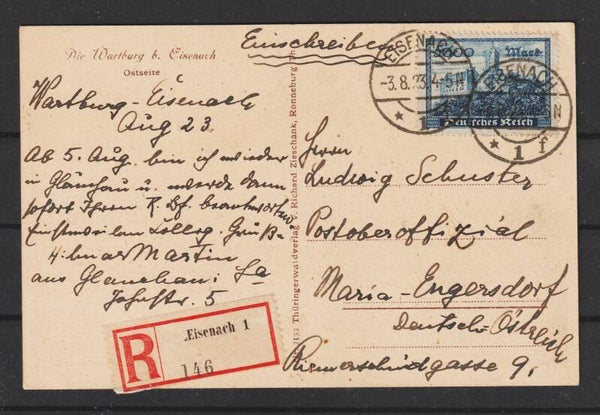 Die Wartburg b. Eisenach
Ostseite
Wartburg-Eisenach
Aug 23.
Ab 5. Aug. bin ich wieder
in Glauchau u. werde dann
sofort Ihren R. Bf. beantworten
Einstweilen Grüße
Martin
aus Glauchau i. Sa
5
Eisenach 1
146
R
2133 Thüringerwaldverlag v. Richard Zieschank, Ronneburg
Einschreiben
5000 Mark
Deutsches Reich
EISENACH
-3.8.23.4-5.N
* 1
EISENACH
* 1 f
Herrn
Ludwig Schuster
Postoberoffizial
Maria-Engersdorf
Deutsch-Österreich
Riemerschmidgasse 9.